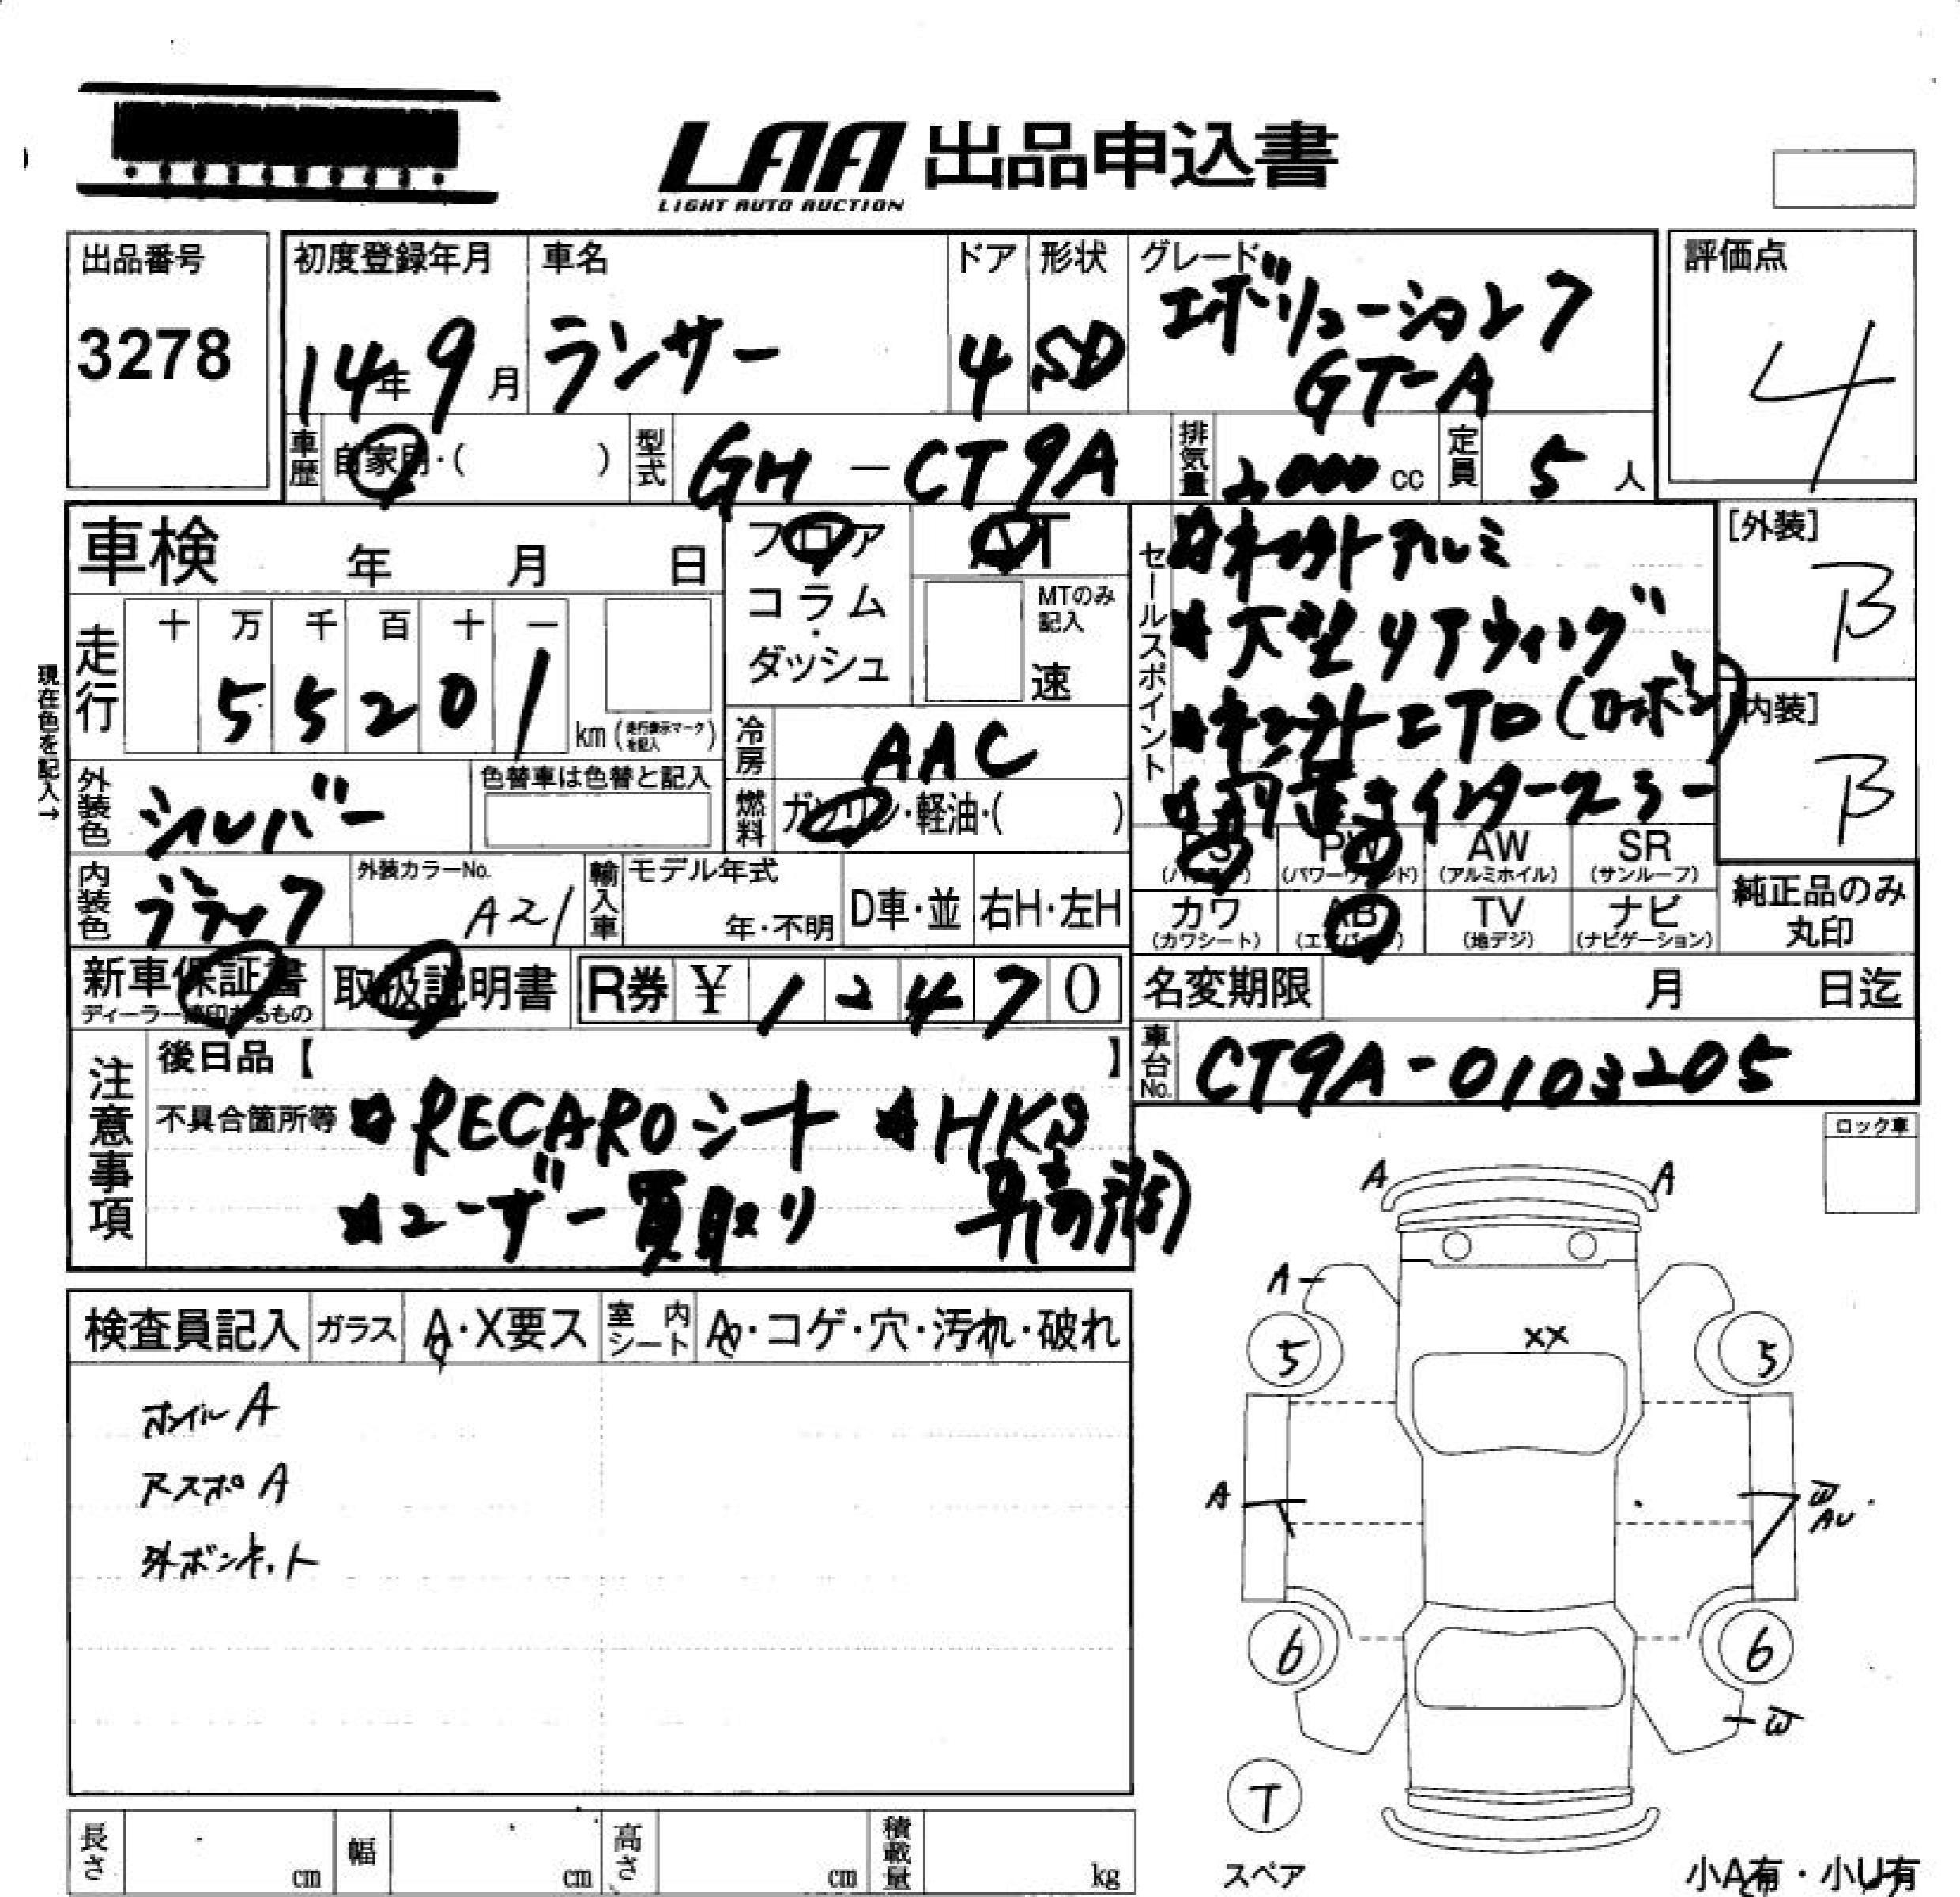 LAA 出品申込書
LIGHT AUTO AUCTION
出品番号
3278
初度登録年月
14年9月
車名
ランサー
ドア
4
形状
SD
グレード
エボリューション7
GT-A
評価点
4
車歴
自家用・( )
型式
GH-CT9A
排気量
2000 cc
定員
5 人
車検 年 月 日
走行
十 万 千 百 十 一
5 5 2 0 1
km (走行表示マークを記入)
現在色を記入→
フロア
コラム
・
ダッシュ
AT
MTのみ記入
速
冷房
AAC
燃料
ガソリン・軽油・( )
外装色
シルバー
色替車は色替と記入
内装色
ブラック
外装カラーNo.
A21
輸入車
モデル年式
年・不明
D車・並
右H・左H
セールスポイント
アルミ
☆大型リアウィング
☆前置きインタークーラー
[外装]
B
[内装]
B
PS
(パワステ)
PW
(パワーウィンド)
AW
(アルミホイル)
SR
(サンルーフ)
カワ
(カワシート)
AB
(エアバッグ)
TV
(地デジ)
ナビ
(ナビゲーション)
純正品のみ
丸印
新車保証書
ディーラー捺印あるもの
取扱説明書
R券 ¥ 1 2 4 7 0
名変期限 月 日迄
車台No.
CT9A-0103205
注意事項
後日品【 】
不具合箇所等
☆RECAROシート ☆HKS
☆ユーザー買取り 車高調
ロック車
検査員記入
ガラス
A・X要ス
室内シート
A・コゲ・穴・汚れ・破れ
ホイルA
アスポA
外ボンネット
A A
A
XX
5 5
A
W
AU
6 6
W
T
スペア
小A有・小U有
長さ cm
幅 cm
高さ cm
積載量 kg